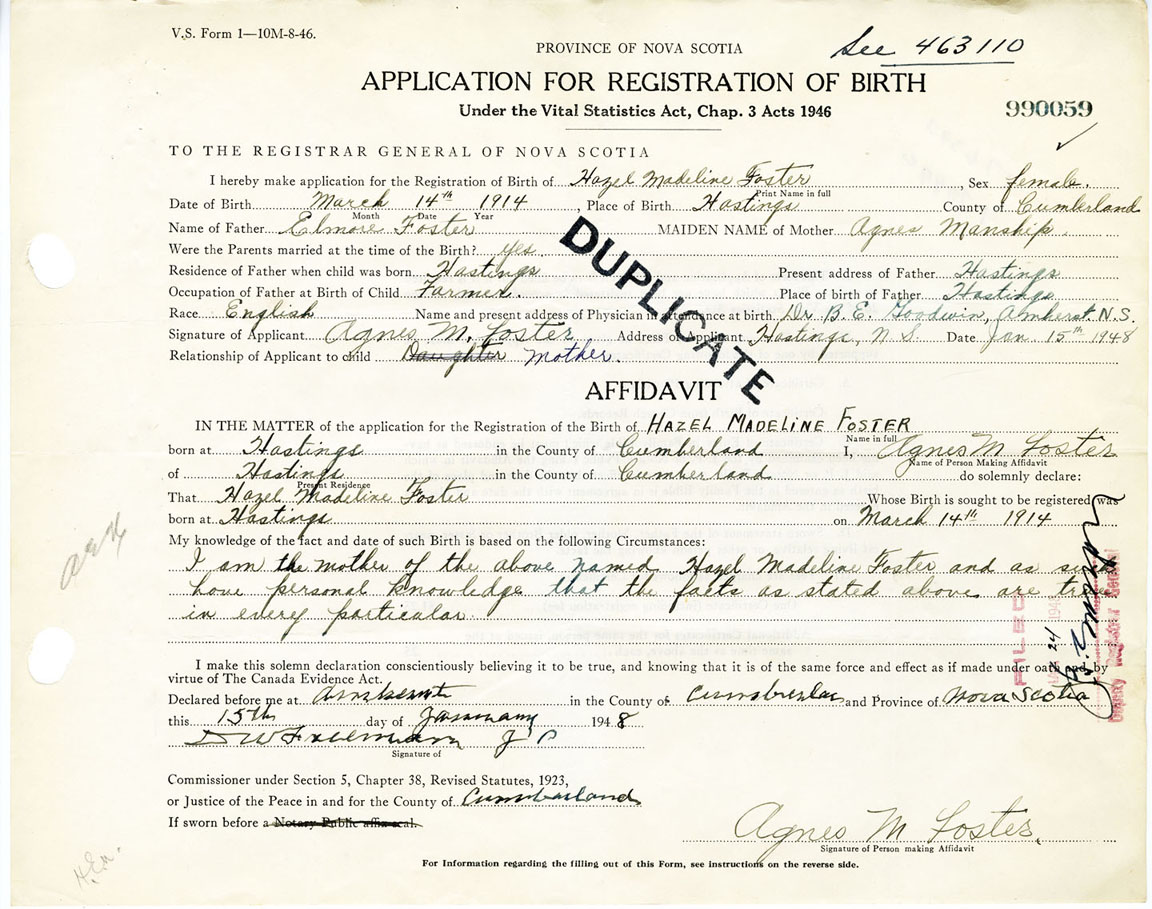 V.S. Form 1—10M-8-46.
See 463110
PROVINCE OF NOVA SCOTIA
APPLICATION FOR REGISTRATION OF BIRTH
Under the Vital Statistics Act, Chap. 3 Acts 1946
990059
TO THE REGISTRAR GENERAL OF NOVA SCOTIA
I hereby make application for the Registration of Birth of Hazel Madeline Foster, Sex female.
Print Name in full
Date of Birth March 14th 1914, Place of Birth Hastings County of Cumberland
Month Date Year
Name of Father Elmore Foster MAIDEN NAME of Mother Agnes Manship.
Were the Parents married at the time of the Birth? yes.
Residence of Father when child was born Hastings Present address of Father Hastings
Occupation of Father at Birth of Child Farmer. Place of birth of Father Hastings
Race English Name and present address of Physician in attendance at birth Dr. B. E. Goodwin, Amherst N.S.
Signature of Applicant Agnes M. Foster Address of Applicant Hastings, N.S. Date Jan. 15th 1948
Relationship of Applicant to child Daughter Mother.
DUPLICATE
AFFIDAVIT
IN THE MATTER of the application for the Registration of the Birth of HAZEL MADELINE FOSTER
Name in full
born at Hastings in the County of Cumberland I, Agnes M Foster
Name of Person Making Affidavit
of Hastings in the County of Cumberland do solemnly declare:
Present Residence
That Hazel Madeline Foster Whose Birth is sought to be registered was
born at Hastings on March 14th 1914
My knowledge of the fact and date of such Birth is based on the following Circumstances:
I am the mother of the above named Hazel Madeline Foster and as such
have personal knowledge that the facts as stated above are true
in every particular.
FILED
Deputy Registrar General
I make this solemn declaration conscientiously believing it to be true, and knowing that it is of the same force and effect as if made under oath and by
virtue of The Canada Evidence Act.
Declared before me at Amherst in the County of Cumberland and Province of Nova Scotia
this 15th day of January 1948
D W Freemann J P
Signature of
Commissioner under Section 5, Chapter 38, Revised Statutes, 1923,
or Justice of the Peace in and for the County of Cumberland
If sworn before a Notary Public affix seal.
Agnes M Foster.
Signature of Person making Affidavit
For Information regarding the filling out of this Form, see instructions on the reverse side.